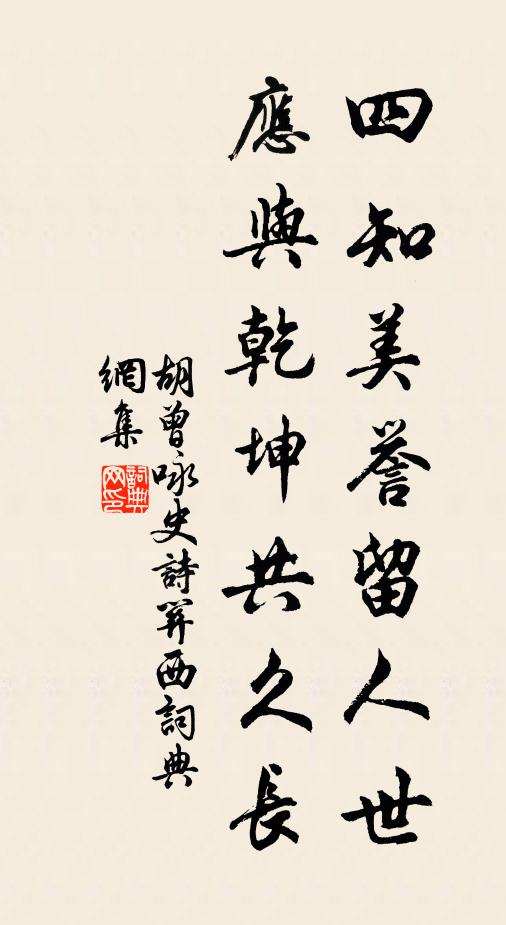 四知美譽留人世
應與乾坤共久長
胡曾咏史詩関西詞典
網集
詞典
网印